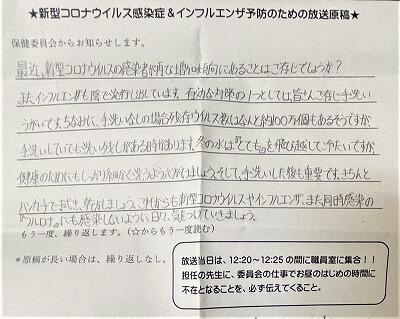 ★新型コロナウイルス感染症＆インフルエンザ予防のための放送原稿★
保健委員会からお知らせします。
最近、新型コロナウイルスの感染者が再び増加傾向にあることはご存じでしょうか？
また、インフルエンザも陰で流行し出しています。有効な対策の1つとしては、皆さんご存じ手洗い
うがいです。ちなみに、手洗いなしの場合、残存ウイルス数はなんと約100万個もあるそうですが、
手洗いしていても洗い残しがある時があります。冬の水は『とても』を飛び越して冷たいですが、
健康のためにもしっかり細かく洗うように心がけましょう。そして、手洗いした後も重要です。きちんと
ハンカチでまとき、乾かしましょう。これからも新型コロナウイルスやインフルエンザ、また、同時感染の
"フルロナ"にも感染しないように日々、気をつけていきましょう。
もう一度、繰り返します。(☆からもう一度読む)
＊原稿が長い場合は、繰り返しなし。
放送当日は、12:20～12:25の間に職員室に集合！！
担任の先生に、委員会の仕事でお昼のはじめの時間に
不在となることを、必ず伝えてくること。